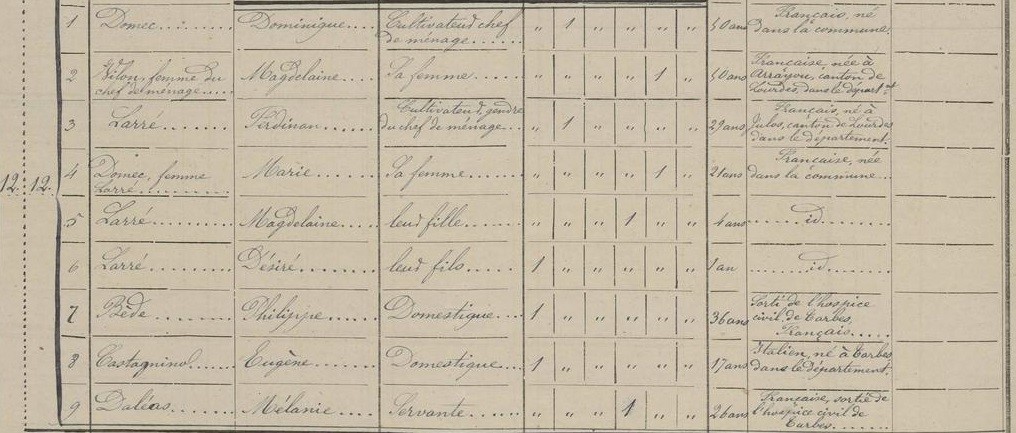 1 Domec Dominique Cultivateur chef de ménage „ 1 „ „ „ „ 50 ans Français, né dans la commune.
2 Vilon, femme du chef de ménage Magdelaine Sa femme „ „ „ „ 1 „ 50 ans Française, née à Arrayou, canton de Lourdes, dans le départ.nt
3 Larré Ferdinan Cultivateur, gendre du chef de ménage „ 1 „ „ „ „ 29 ans Français, né à Julos, canton de Lourdes dans le département.
12. 12. 4 Domec, femme Larré Marie Sa femme „ „ „ „ 1 „ 21 ans Française, née dans la commune
5 Larré Magdelaine leur fille „ „ „ 1 „ „ 4 ans id
6 Larré Désiré leur fils 1 „ „ „ „ „ 1 an id
7 Bède Philippe Domestique 1 „ „ „ „ „ 36 ans Sorti de l'hospice civil de Tarbes, Français
8 Castagninol Eugène Domestique 1 „ „ „ „ „ 17 ans Italien, né à Tarbes dans le département.
9 Daléas Mélanie Servante „ „ „ 1 „ „ 26 ans Française, sortie de l'hospice civil de Tarbes